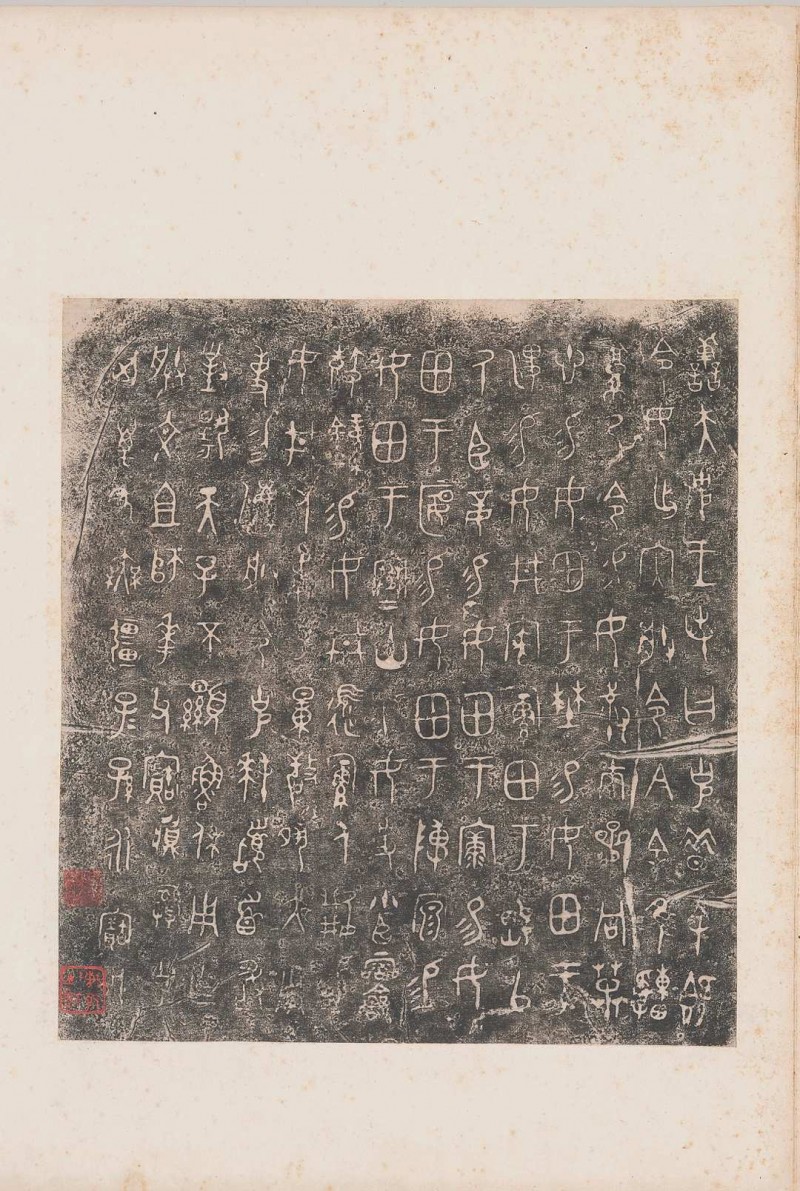 善夫克王若曰克昔余既
令女出內朕令今余隹
乃令易女叔巿參冋
易女田于埜易女田于
渒易女丼家田于以
厥臣妾易女田于康易女
田于匽易女田于陴原易
女田于寒山易女史小臣霝龠
鼓鐘易女丼人
女丼人奔于量敬夙夜用
事勿灋朕令克拜稽首敢
對揚天子不顯魯休用乍
朕文且師華父寶彝克
其萬年無疆子子孫孫永寶用